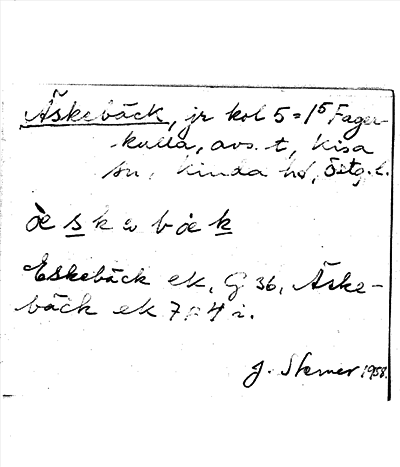 Äskebäck, jr kol 5 = 1⁵ Fager-
kulla, avs. t, Kisa
sn, Kinda hd, Östg. l.
æ̀ s k ɷ b æ̀ k
Eskebäck ek, G 36, Äske-
bäck ek 7 4 i.
J. Sterner 1958.